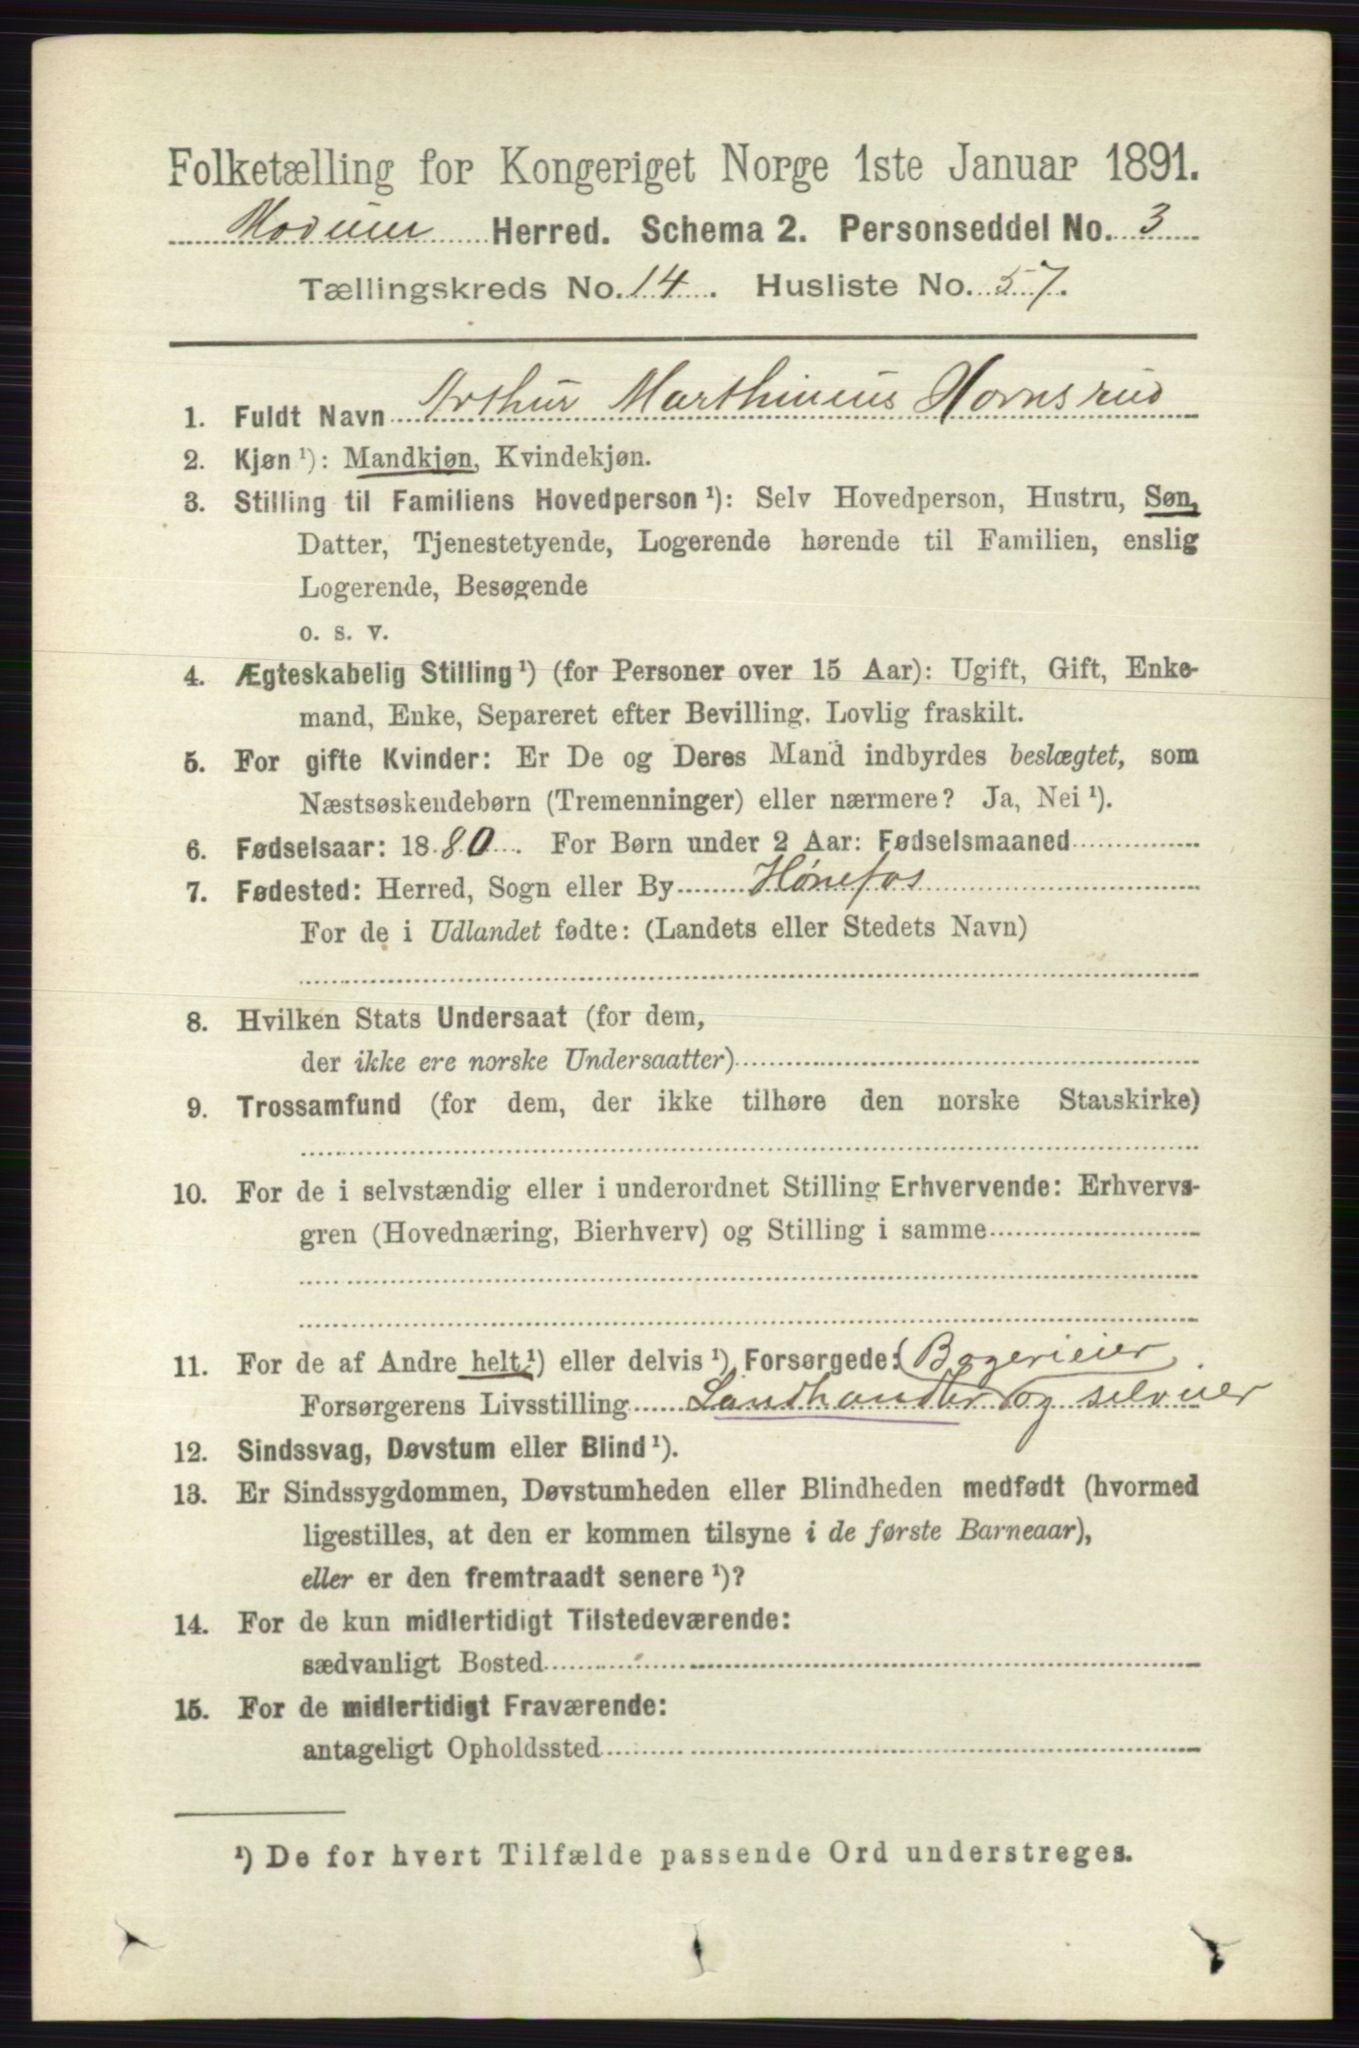 Folketælling for Kongeriget Norge 1ste Januar 1891.
Modum Herred. Schema 2. Personseddel No. 3
Tællingskreds No. 14. Husliste No. 57.
1. Fuldt Navn Arthur Marthinius Hornsrud
2. Kjøn ¹): Mandkjøn, Kvindekjøn.
3. Stilling til Familiens Hovedperson ¹): Selv Hovedperson, Hustru, Søn,
Datter, Tjenestetyende, Logerende hørende til Familien, enslig
Logerende, Besøgende
o. s. v.
4. Ægteskabelig Stilling ¹) (for Personer over 15 Aar): Ugift, Gift, Enke-
mand, Enke, Separeret efter Bevilling, Lovlig fraskilt.
5. For gifte Kvinder: Er De og Deres Mand indbyrdes beslægtet, som
Næstsøskendebørn (Tremenninger) eller nærmere? Ja, Nei ¹).
6. Fødselsaar: 1880. For Børn under 2 Aar: Fødselsmaaned
7. Fødested: Herred, Sogn eller By Hønefos
For de i Udlandet fødte: (Landets eller Stedets Navn)
8. Hvilken Stats Undersaat (for dem,
der ikke ere norske Undersaatter)
9. Trossamfund (for dem, der ikke tilhøre den norske Statskirke)
10. For de i selvstændig eller i underordnet Stilling Erhvervende: Erhvervs-
gren (Hovednæring, Bierhverv) og Stilling i samme
11. For de af Andre helt ¹) eller delvis ¹) Forsørgede: (Bagerieier
Forsørgerens Livsstilling Landhandler og selveier
12. Sindssvag, Døvstum eller Blind ¹).
13. Er Sindssygdommen, Døvstumheden eller Blindheden medfødt (hvormed
ligestilles, at den er kommen tilsyne i de første Barneaar),
eller er den fremtraadt senere ¹)?
14. For de kun midlertidigt Tilstedeværende:
sædvanligt Bosted
15. For de midlertidigt Fraværende:
antageligt Opholdssted
¹) De for hvert Tilfælde passende Ord understreges.